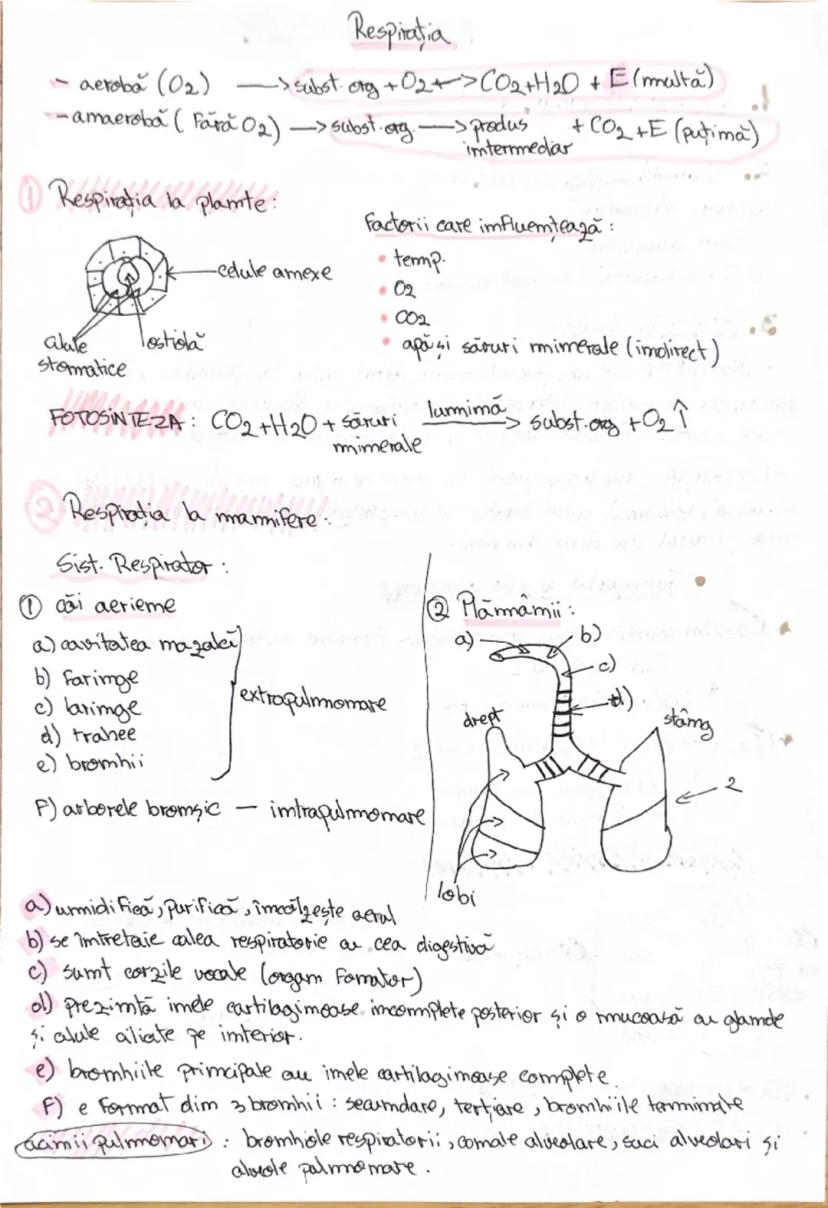 Respirația
- aerobă (O2) → subst. org + O2 ↔ CO2+H2O + E (multă)
- anaerobă (Fără O2) → subst. org. → produs intermediar + CO2 + E (puțină)
① Respirația la plante:
celule anexe
celule stomatice
ostiolă
Factorii care influențează:
• temp.
• O2
• CO2
• apă și săruri minerale (indirect)
FOTOSINTEZA: CO2 + H2O + săruri minerale lumină → subst. org + O2 ↑
② Respirația la mamifere:
Sist. Respirator:
① căi aeriene
a) cavitatea nazală
b) Faringe
c) laringe
d) trahee
e) bronhii
extrapulmonare
F) arborele bronșic – intrapulmonare
② Plămânii:
a)
b)
c)
d)
drept
stâng
2
lobi
a) umidifică, purifică, încălzește aerul
b) se întretaie calea respiratorie cu cea digestivă
c) sunt corzile vocale (organ Fonator)
d) prezintă inele cartilaginoase incomplete posterior și o mucoasă cu glande
și celule ciliate pe interior.
e) bronhiile principale au inele cartilaginoase complete
F) e Format din 3 bronhii: secundare, terțiare, bronhiile terminale
acinii pulmonari: bronhiole respiratorii, canale alveolare, saci alveolari și
alveole pulmonare.